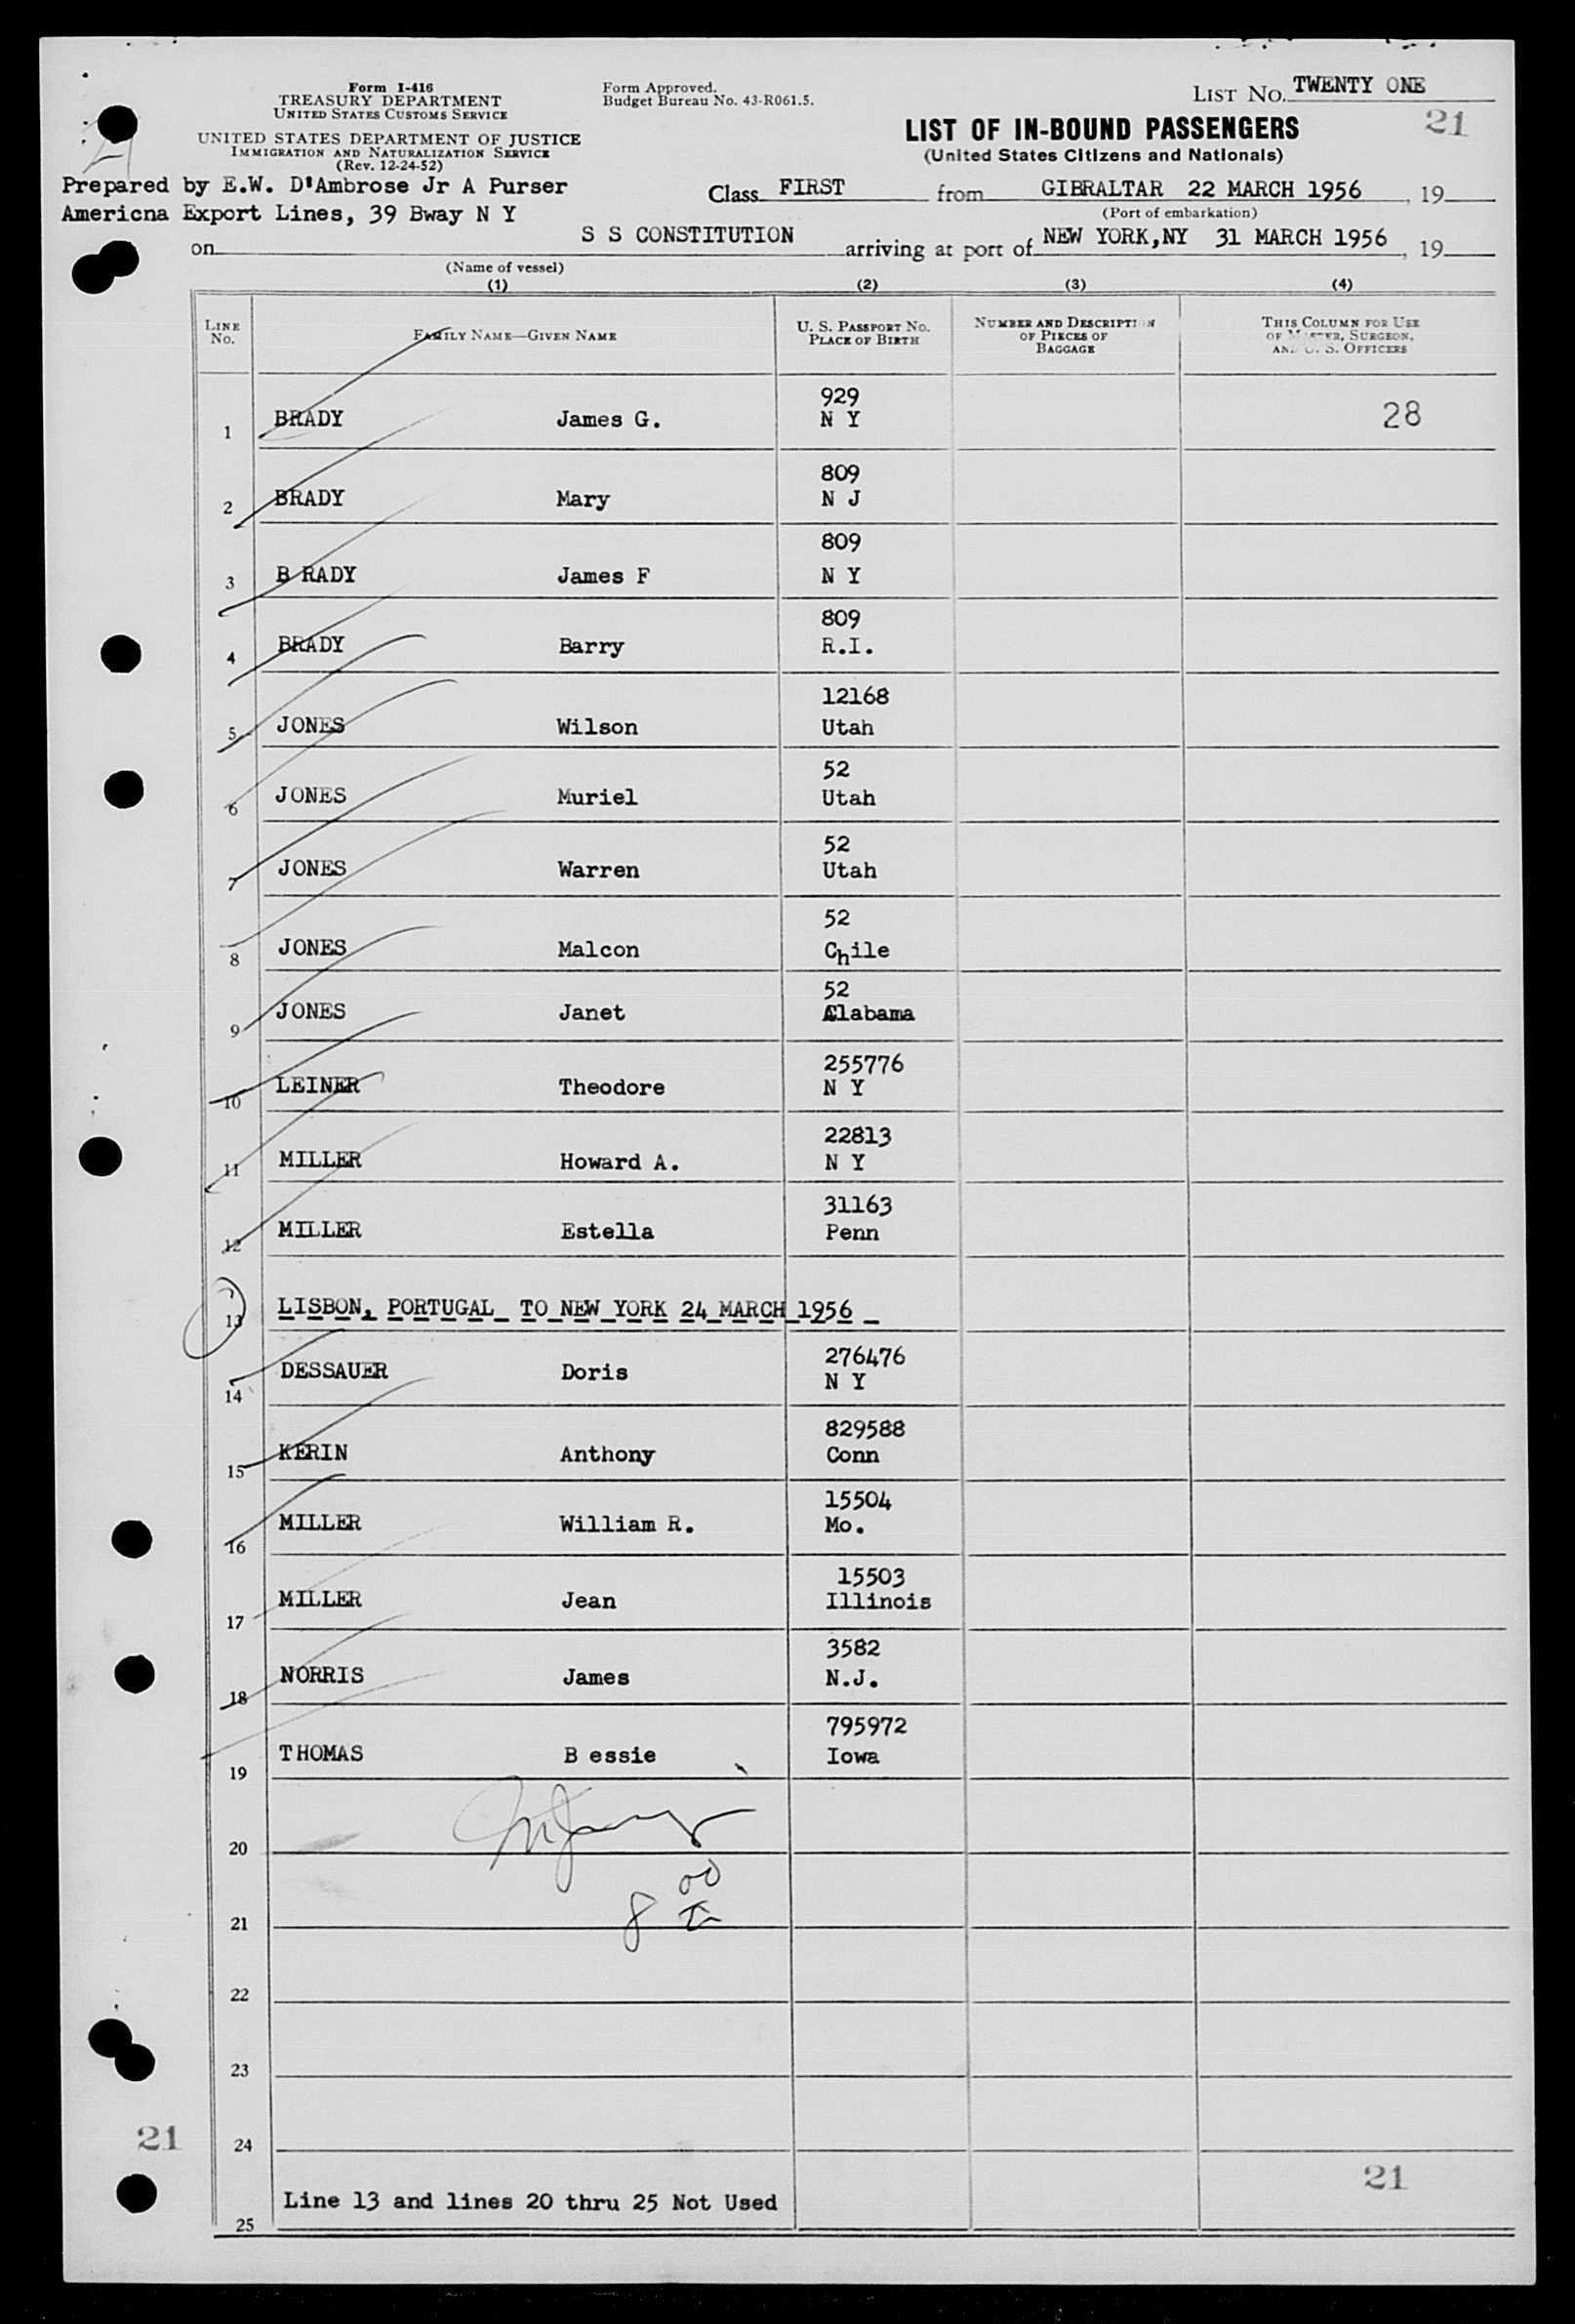 Form I-416
TREASURY DEPARTMENT
UNITED STATES CUSTOMS SERVICE
UNITED STATES DEPARTMENT OF JUSTICE
IMMIGRATION AND NATURALIZATION SERVICE
(Rev. 12-24-52)
Form Approved.
Budget Bureau No. 43-R061.5.
LIST NO. TWENTY ONE
21
LIST OF IN-BOUND PASSENGERS
(United States Citizens and Nationals)
Prepared by E.W. D'Ambrose Jr A Purser
Americna Export Lines, 39 Bway N Y
Class FIRST from GIBRALTAR 22 MARCH 1956, 19
(Port of embarkation)
on S S CONSTITUTION arriving at port of NEW YORK,NY 31 MARCH 1956, 19
(Name of vessel)
(1) (2) (3) (4)
LINE No. FAMILY NAME—GIVEN NAME U. S. PASSPORT NO. PLACE OF BIRTH NUMBER AND DESCRIPTION OF PIECES OF BAGGAGE THIS COLUMN FOR USE OF MASTER, SURGEON, AND U. S. OFFICERS
929
1 BRADY James G. N Y 28
809
2 BRADY Mary N J
809
3 B RADY James F N Y
809
4 BRADY Barry R.I.
12168
5 JONES Wilson Utah
52
6 JONES Muriel Utah
52
7 JONES Warren Utah
52
8 JONES Malcon Chile
52
9 JONES Janet Alabama
255776
10 LEINER Theodore N Y
22813
11 MILLER Howard A. N Y
31163
12 MILLER Estella Penn
13 LISBON, PORTUGAL TO NEW YORK 24 MARCH 1956
276476
14 DESSAUER Doris N Y
829588
15 KERIN Anthony Conn
15504
16 MILLER William R. Mo.
15503
17 MILLER Jean Illinois
3582
18 NORRIS James N.J.
795972
19 THOMAS B essie Iowa
20
8 00
21
22
23
21 24
21
Line 13 and lines 20 thru 25 Not Used
25